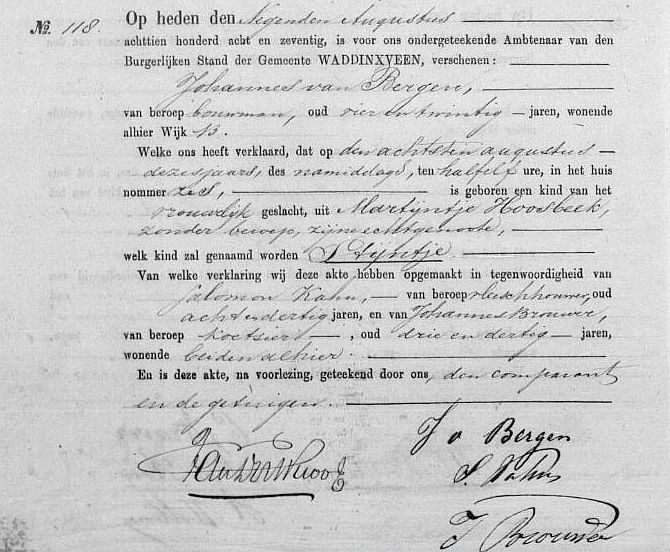 No. 118. Op heden den Negenden Augustus
achttien honderd acht en zeventig, is voor ons ondergeteekende Ambtenaar van den
Burgerlijken Stand der Gemeente WADDINXVEEN, verschenen:
Johannes van Bergen,
van beroep bouwman, oud vier en twintig jaren, wonende
alhier Wijk B.
Welke ons heeft verklaard, dat op den achtsten augustus
dezes jaars, des namiddags, ten half elf ure, in het huis
nommer zes, is geboren een kind van het
vrouwelijk geslacht, uit Martijntje Hoosbeek,
zonder beroep, zijne echtgenoote,
welk kind zal genaamd worden Stijntje.
Van welke verklaring wij deze akte hebben opgemaakt in tegenwoordigheid van
Salomon Kahn, van beroep vleeschhouwer, oud
acht en dertig jaren, en van Johannes Brouwer,
van beroep koetsier, oud drie en dertig jaren,
wonende beiden alhier.
En is deze akte, na voorlezing, geteekend door ons, den comparant
en de getuigen.
J v Bergen
S. Kahn
J Brouwer